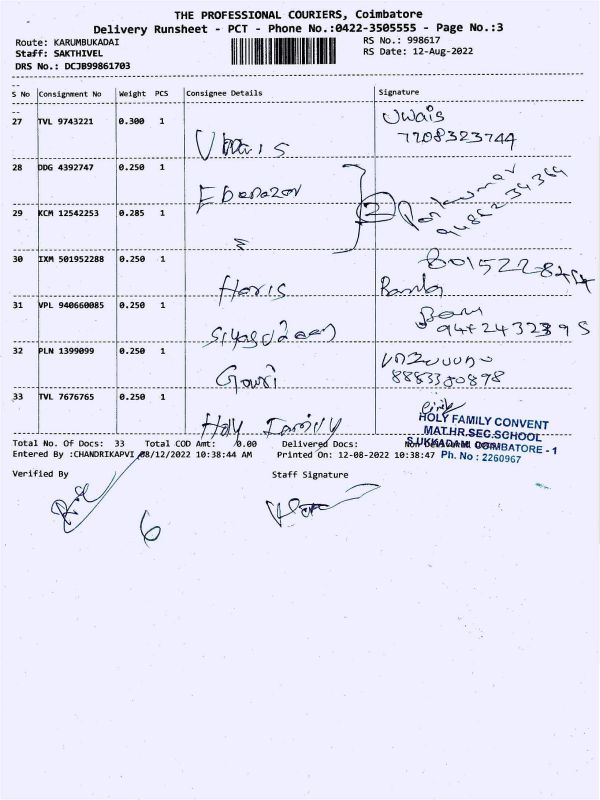 THE PROFESSIONAL COURIERS, Coimbatore
Delivery Runsheet - PCT - Phone No.:0422-3505555 - Page No.:3
Route: KARUMBUKADAI
RS No.: 998617
Staff: SAKTHIVEL
RS Date: 12-Aug-2022
DRS No.: DCJB99861703
S No Consignment No Weight PCS Consignee Details Signature
27 TVL 9743221 0.300 1 Uwais
7708323744
28 DDG 4392747 0.250 1
2
29 KCM 12542253 0.285 1
30 IXM 501952288 0.250 1 Haris
31 VPL 940660085 0.250 1
32 PLN 1399099 0.250 1 Gowri
33 TVL 7676765 0.250 1 Holy Family
HOLY FAMILY CONVENT
MAT.HR.SEC.SCHOOL
Total No. Of Docs: 33 Total COD Amt: 0.00 Delivered Docs:
SUKKADAM, COIMBATORE - 1
Entered By :CHANDRIKAPVI 08/12/2022 10:38:44 AM Printed On: 12-08-2022 10:38:47
Ph. No : 2260967
Verified By Staff Signature
6